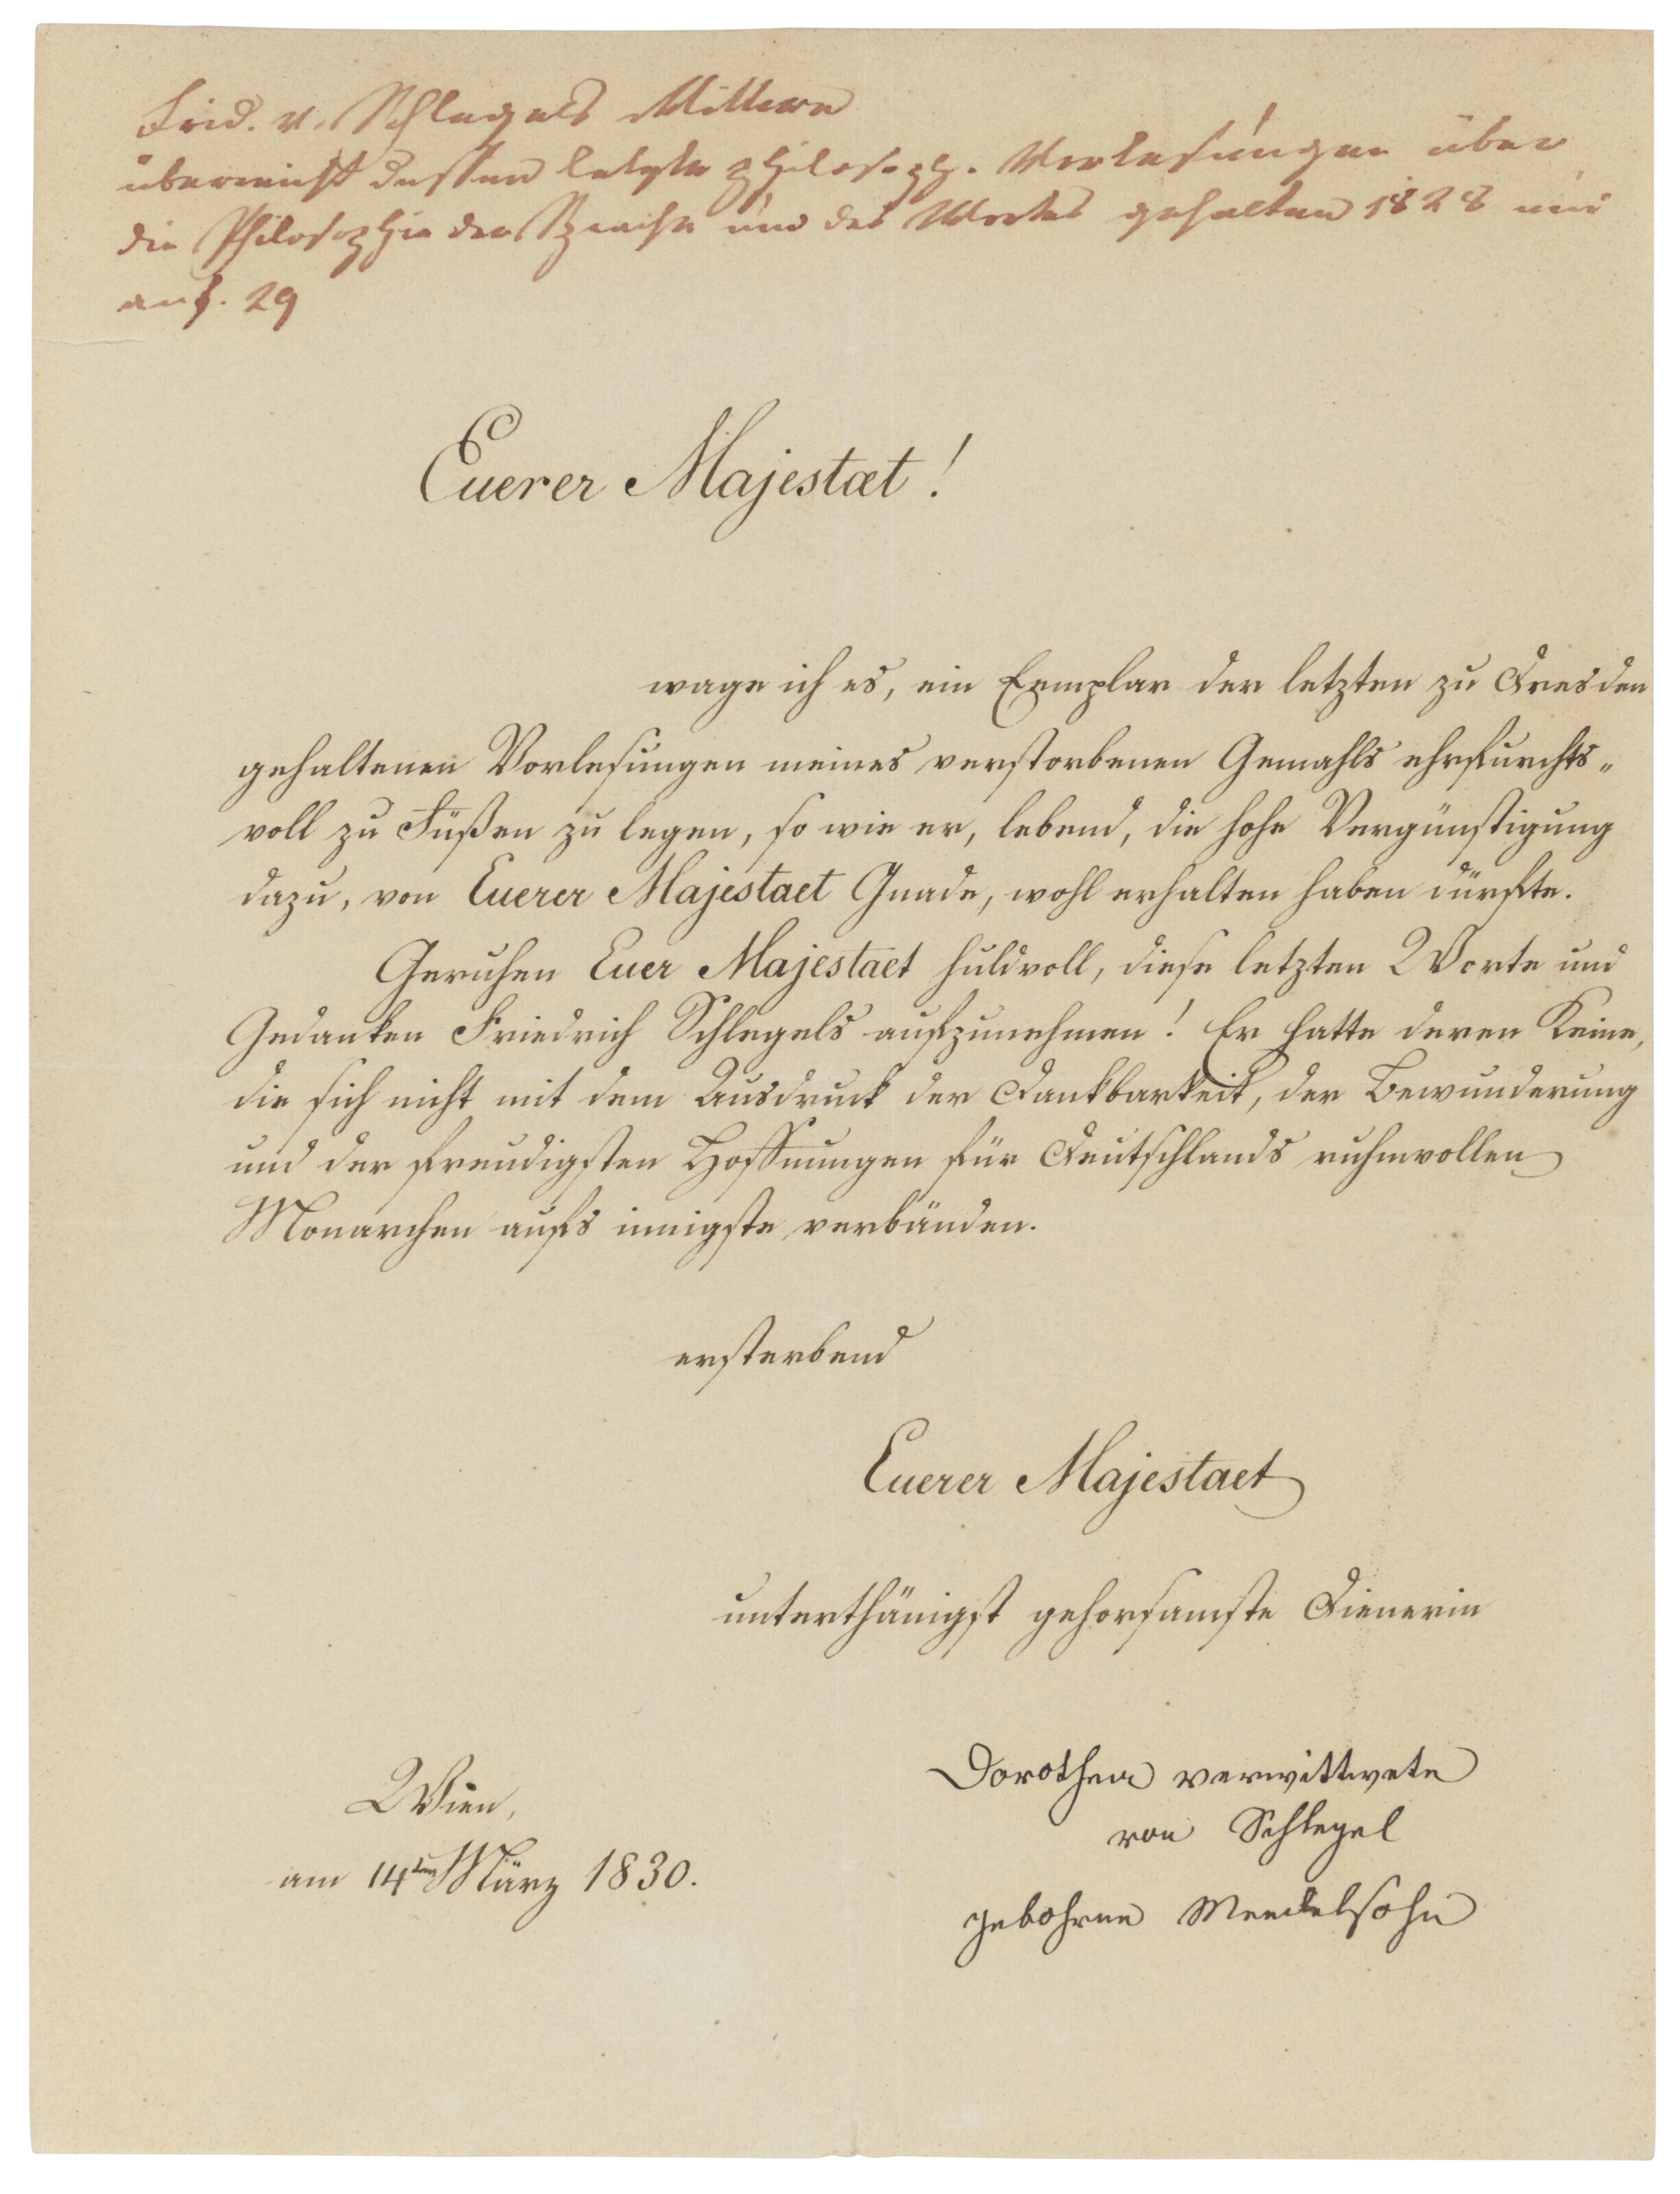 Frid. v. Schlegels Wittwe
überreicht dessen letzte philosoph. Vorlesungen über
die Philosophie der Sprache und des Wortes gehalten 1828 und
anf. 29
Euerer Majestæt!
wage ich es, ein Exemplar der letzten zu Dresden
gehaltenen Vorlesungen meines verstorbenen Gemahls ehrfurchts„
voll zu Füßen zu legen, so wie er, lebend, die hohe Vergünstigung
dazu, von Euerer Majestaet Gnade, wohl erhalten haben dürfte.
Geruhen Euer Majestaet huldvoll, diese letzten Worte und
Gedanken Friedrich Schlegels aufzunehmen! Er hatte deren Keine,
die sich nicht mit dem Ausdruck der Dankbarkeit, der Bewunderung
und der freudigsten Hoffnungen für Deutschlands ruhmvollen
Monarchen aufs innigste verbänden.
ersterbend
Euerer Majestaet
unterthänigst gehorsamste Dienerin
Dorothea verwittwete
von Schlegel
gebohrne Mendelsohn
Wien,
am 14ten März 1830.